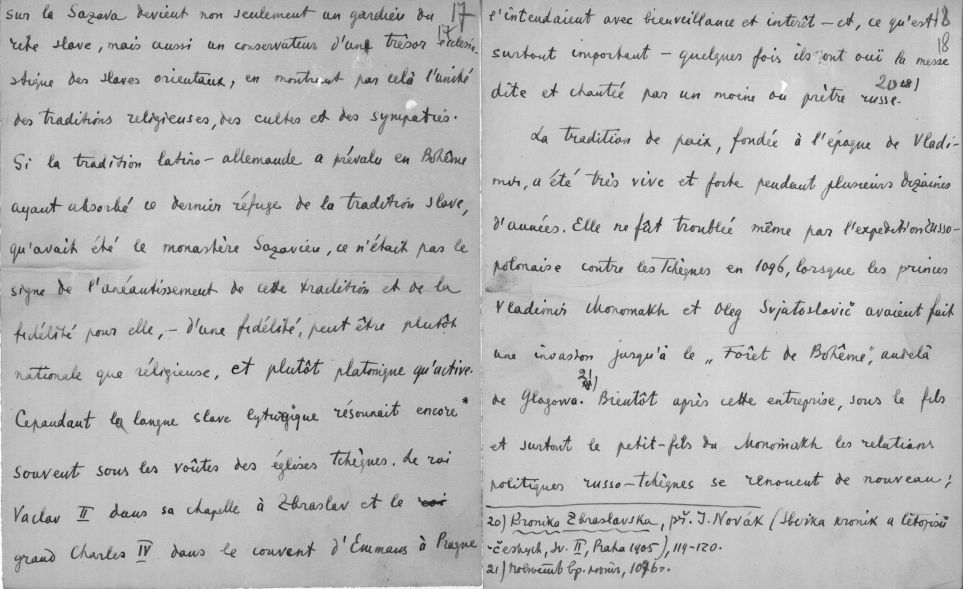 17
sur la Sazava devient non seulement un gardien du
17
rite slave, mais aussi un conservateur d'un trésor ecclesia-
stique des slaves orientaux, en montrant par celà l'unité
des traditions religieuses, des cultes et des sympaties.
Si la tradition latino-allemande a prévalu en Bohême
ayant absorbé ce dernier réfuge de la tradition slave,
qu'avait été le monastère Sazavien, ce n'était pas le
signe de l'anéautissement de cette tradition et de la
fidélité pour elle, – d'une fidélité, peut être plutôt
nationale que réligieuse, et plutôt platonique qu'active.
Cepandaut la langue slave lyturgique résounait encore
souvent sous les voûtes des églises tchèques. Le roi
Vaclav II dans sa chapelle à Zbraslav et le roi
grand Charles IV dans le couvent d'Emmaus à Prague
18
l'intendaient avec bienveillance et interêt – et, ce qu'est
18
surtout important – quelques fois ils ont ouï la messe
dite et chantée par un moine ou prètre russe. 20)
La tradition de paix, fondée à l'époque de Vladi-
mir, a été très vive et forte pendant plusieurs dizaines
d'années. Elle ne fût troublée même par l'expedition russo-
polonaise contre les Tchèques en 1096, lorsque les princes
Vladimir Monomakh et Oleg Svjatoslavič avaient fait
une invasion jusqu'à le „Forêt de Bohême", audelà
de Glogowa. 21) Bientôt après cette entreprise, sous le fils
et surtout le petit-fils du Monomakh les relations
politiques russo-tchèques se renouent de nouveau;
20) Kronika Zbraslavska, př. J. Novák (Sbirka kronik a létopisů
českych, sv. II, Praha 1905), 119-120.
21) 1096 г.